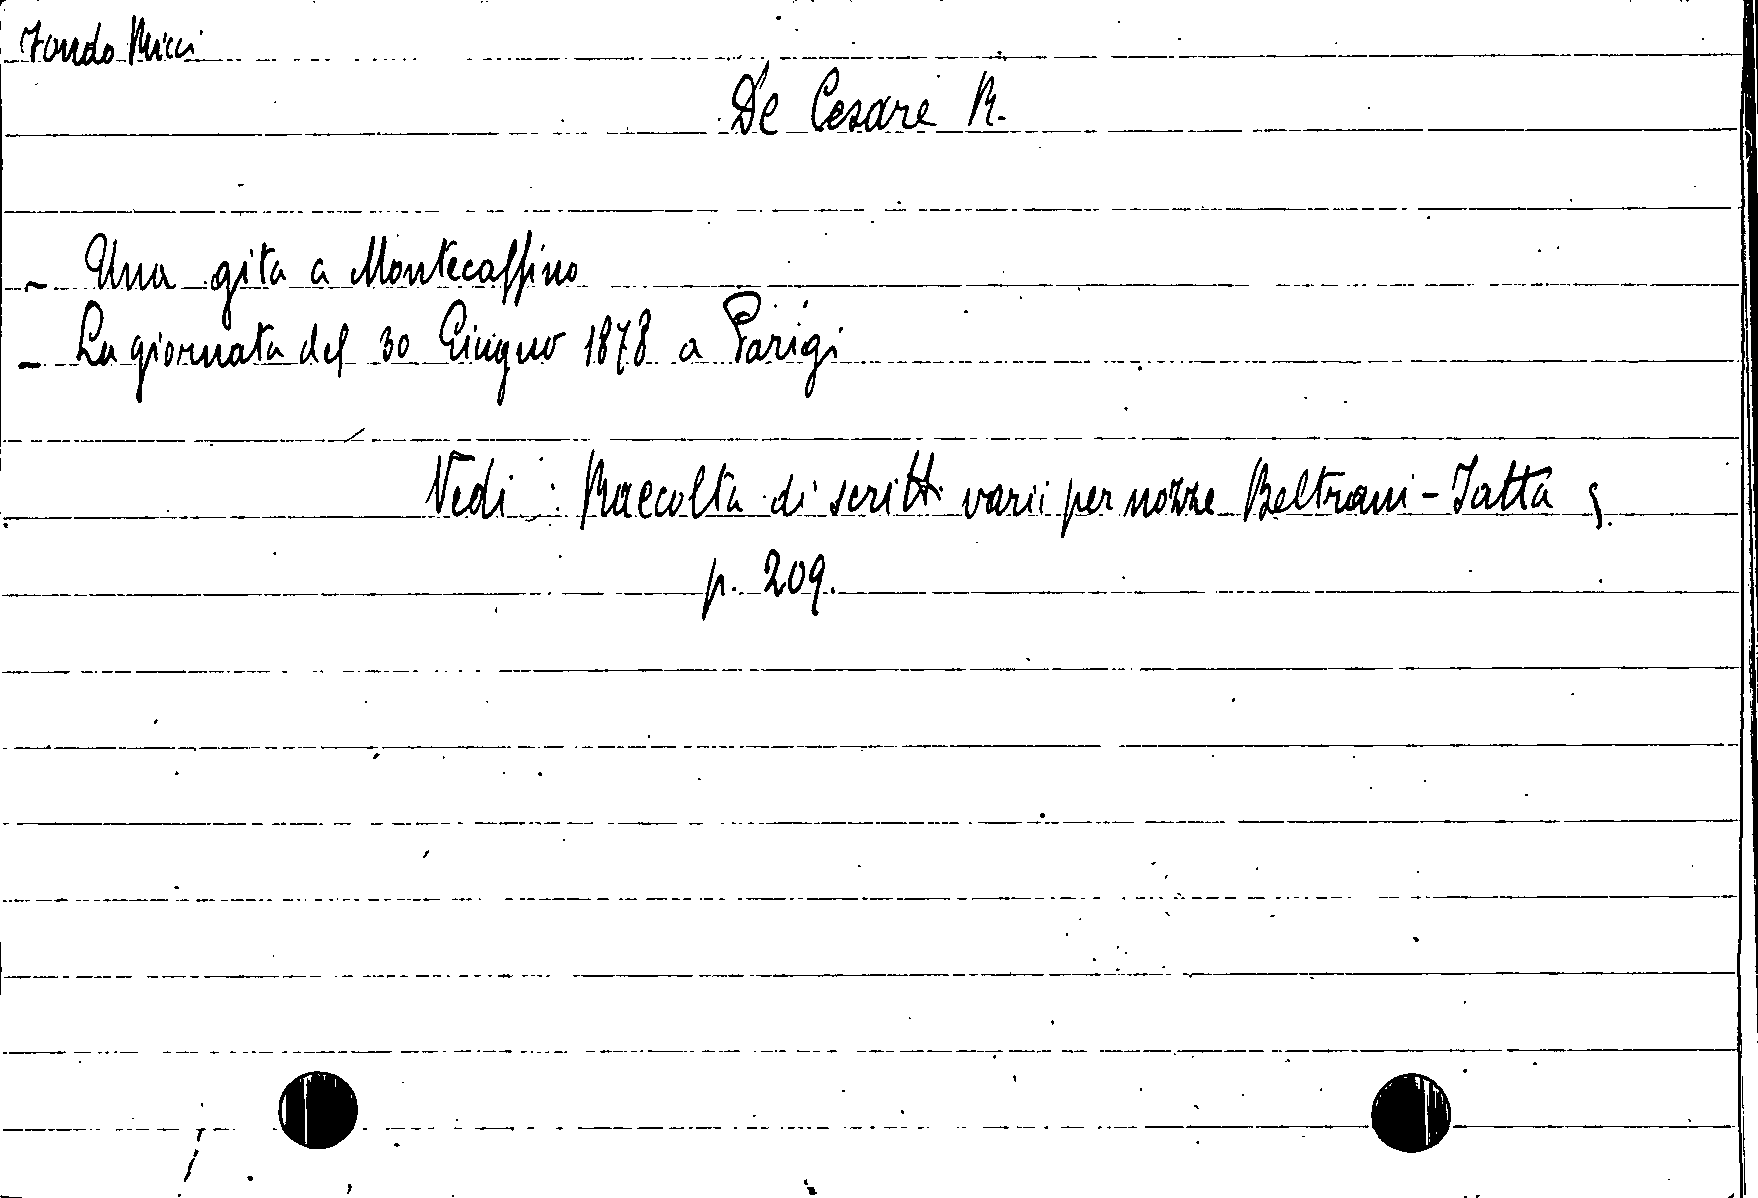 Fondo Ricci
De Cesare R.
- Una gita a Montecassino
- La giornata del 30 Giugno 1878 a Parigi
Vedi : Raccolta di scritti varii per nozze Beltrani - Jatta ;
p. 209.